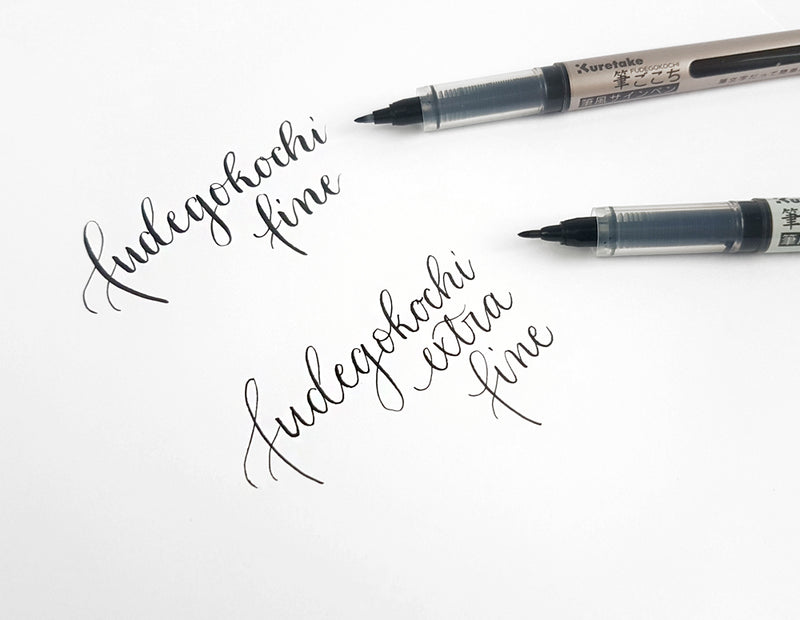 fudegokochi
fine
fudegokochi
extra
fine
Kuretake
FUDEGOKOCHI
筆ごこち
筆風サインペン
筆
筆